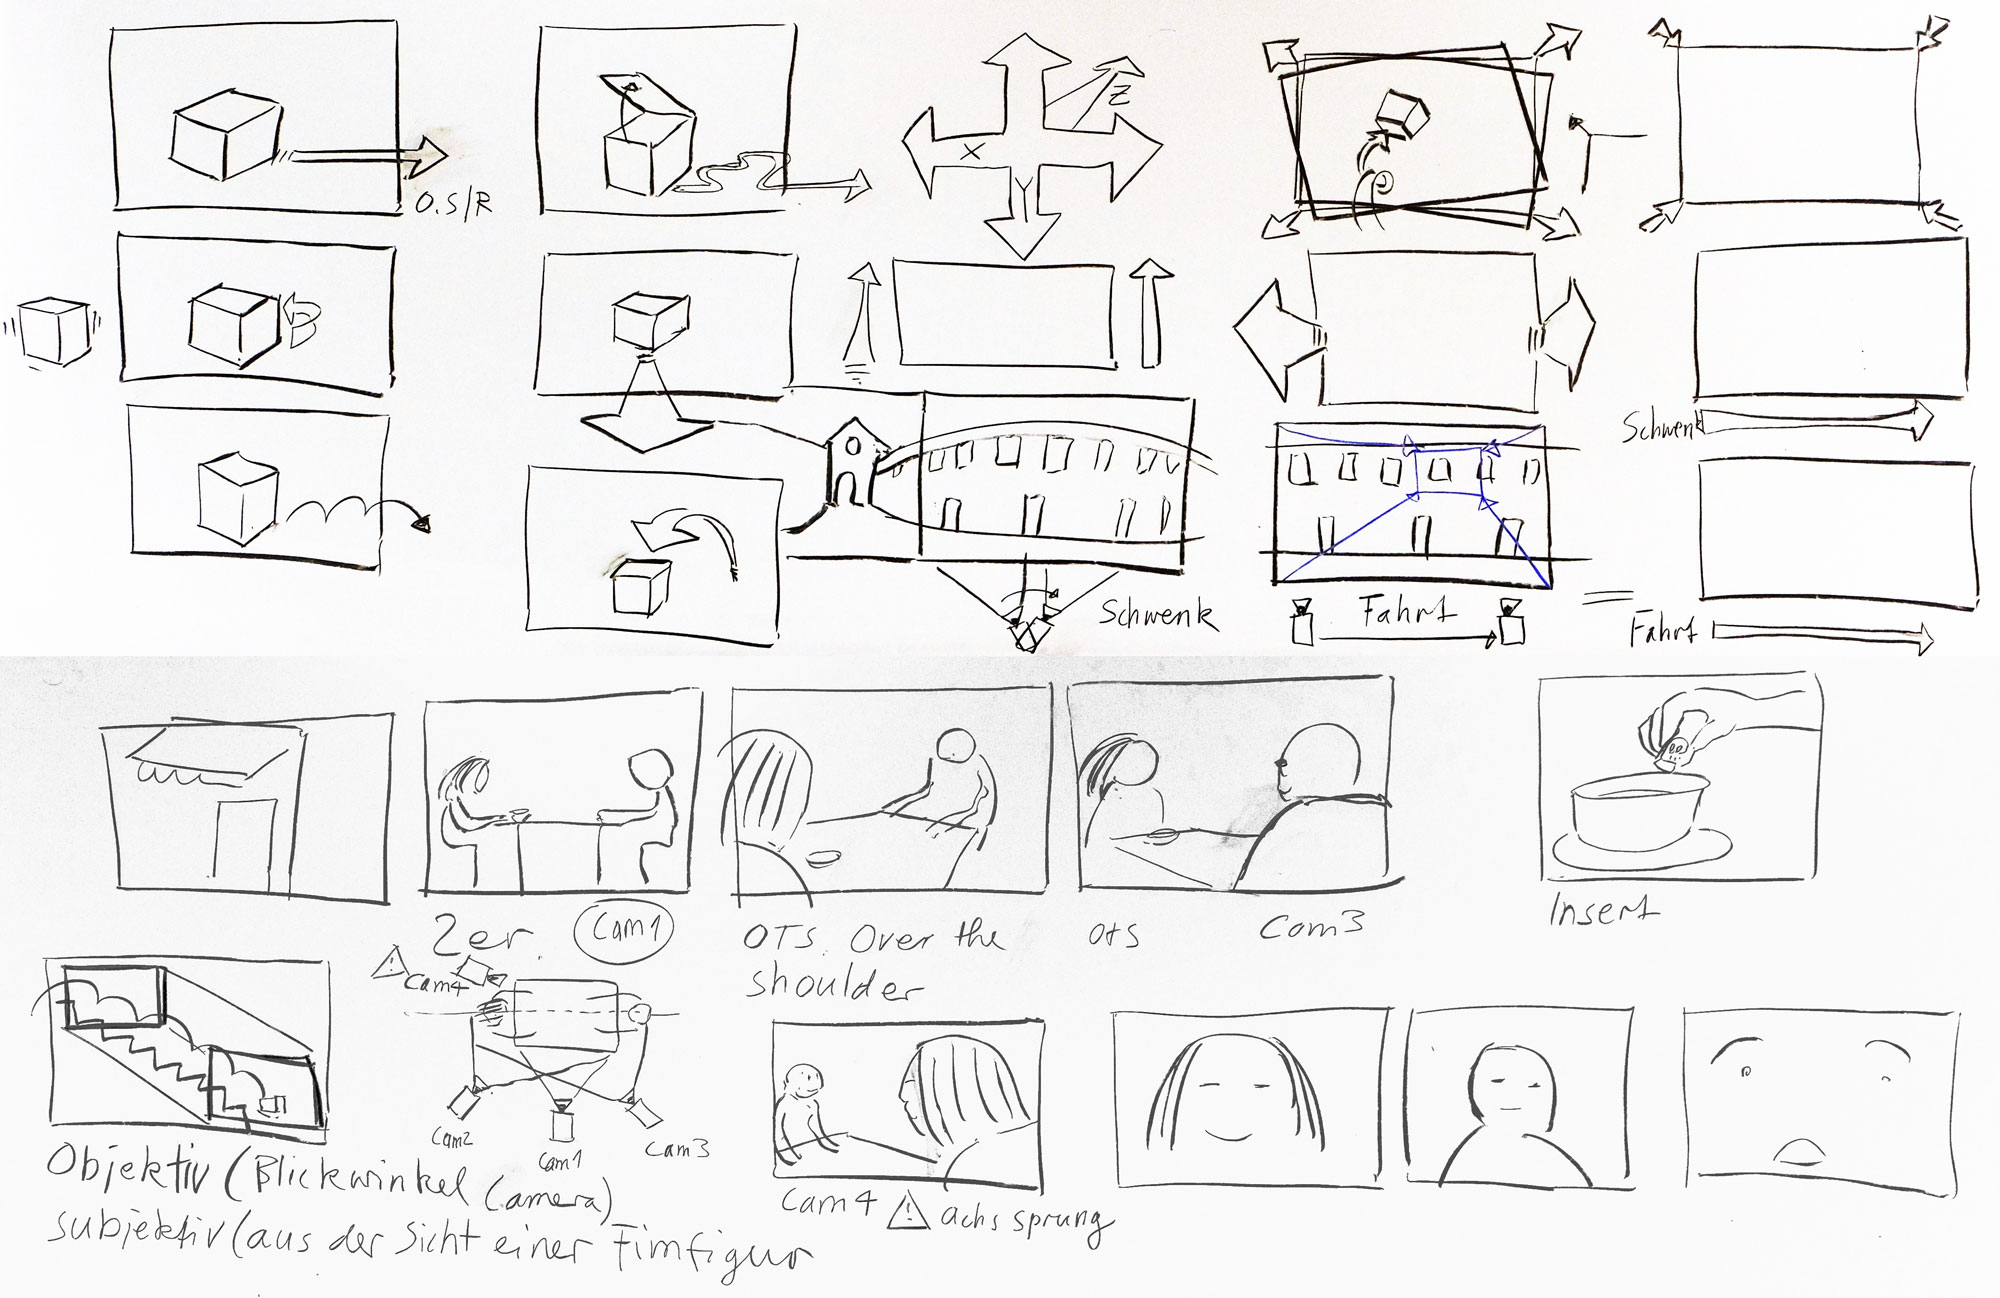 O.S/R
Z
X
Y
Schwenk
Schwenk
Fahrt
Fahrt
2er
Cam1
OTS. Over the
shoulder
OTS
Cam3
Insert
Cam4
Cam2
Cam1
Cam3
Objektiv (Blickwinkel Camera)
subjektiv (aus der Sicht einer Fimfigur
Cam4 ! achssprung